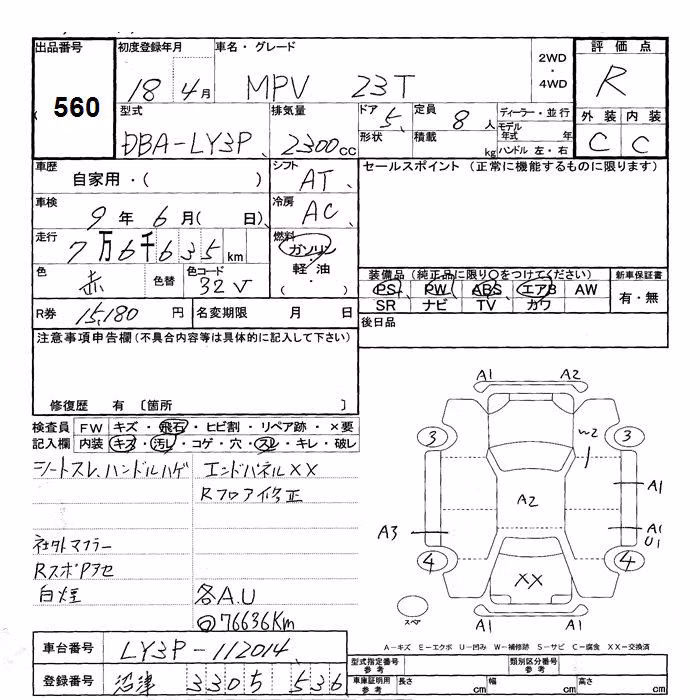 出品番号 初度登録年月 車名・グレード 2WD・4WD 評価点
560 18 4月 MPV 23T R
型式 排気量 ドア 5 定員 8人 ディーラー・並行 外装 内装
DBA-LY3P 2300cc 形状 積載 kg モデル年式 年 ハンドル 左・右 C C
車歴 シフト セールスポイント (正常に機能するものに限ります)
自家用・( ) AT
車検 冷房
9年6月( 日) AC
走行 燃料
7万6千635km ガソリン・軽油・( )
色 色替 色コード 装備品 (純正品に限り○をつけてください) 新車保証書
赤 32V PS PW ABS エアB AW 有・無
SR ナビ TV カワ
R券 15,180円 名変期限 月 日 後日品
注意事項申告欄 (不具合内容等は具体的に記入して下さい)
修復歴 有 〔箇所 〕
検査員 FW キズ・飛石・ヒビ割・リペア跡・×要
記入欄 内装 キズ・汚レ・コゲ・穴・スレ・キレ・破レ
シートスレ、ハンドルハゲ エンドパネルXX
Rフロア修正
社外マフラー
RスポPアセ
白煙 各A.U
◎76636Km
A1 A2
3 W2 3
A1
A2
A3 A1
U1
4 XX 4
スペア A1 A1
A-キズ E-エクボ U-凹み W-補修跡 S-サビ C-腐食 XX-交換済
車台番号 LY3P-112014 型式指定番号 参考 類別区分番号 参考
登録番号 沼津 3305 536 車庫証明用 参考 長さ cm 幅 cm 高さ cm